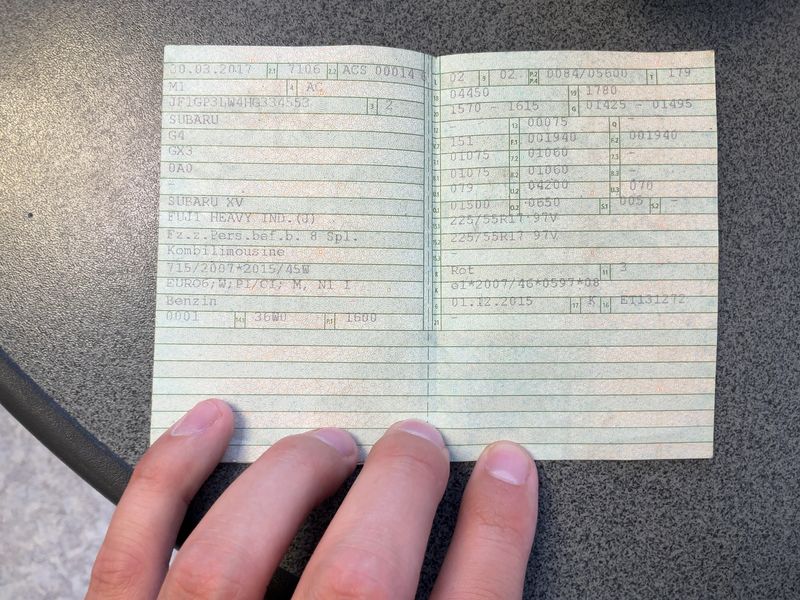 30.03.2017 2.1 7106 2.2 ACS 00014
M1 4 AC
JF1GP3LW4HG334553 3 2
SUBARU
G4
GX3
0A0
-
SUBARU XV
FUJI HEAVY IND.(J)
Fz.z.Pers.bef.b. 8 Spl.
Kombilimousine
715/2007*2015/45W
EURO6;W;PI/CI; M, N1 I
Benzin
0001 14.1 36W0 P.1 1600
L 02 9 02 P.2 P.4 0084/05600 T 179
18 04450 19 1780
20 1570 - 1615 G 01425 - 01495
12 - 13 00075 Q -
V.7 151 F.1 001940 F.2 001940
7.1 01075 7.2 01060 7.3 -
8.1 01075 8.2 01060 8.3 -
U.1 079 U.2 04200 U.3 070
O.1 01500 O.2 0650 S.1 005 S.2 -
15.1 225/55R17 97V
15.2 225/55R17 97V
15.3 -
R Rot 11 3
K e1*2007/46*0597*08
6 01.12.2015 17 K 16 ET131272
21 -